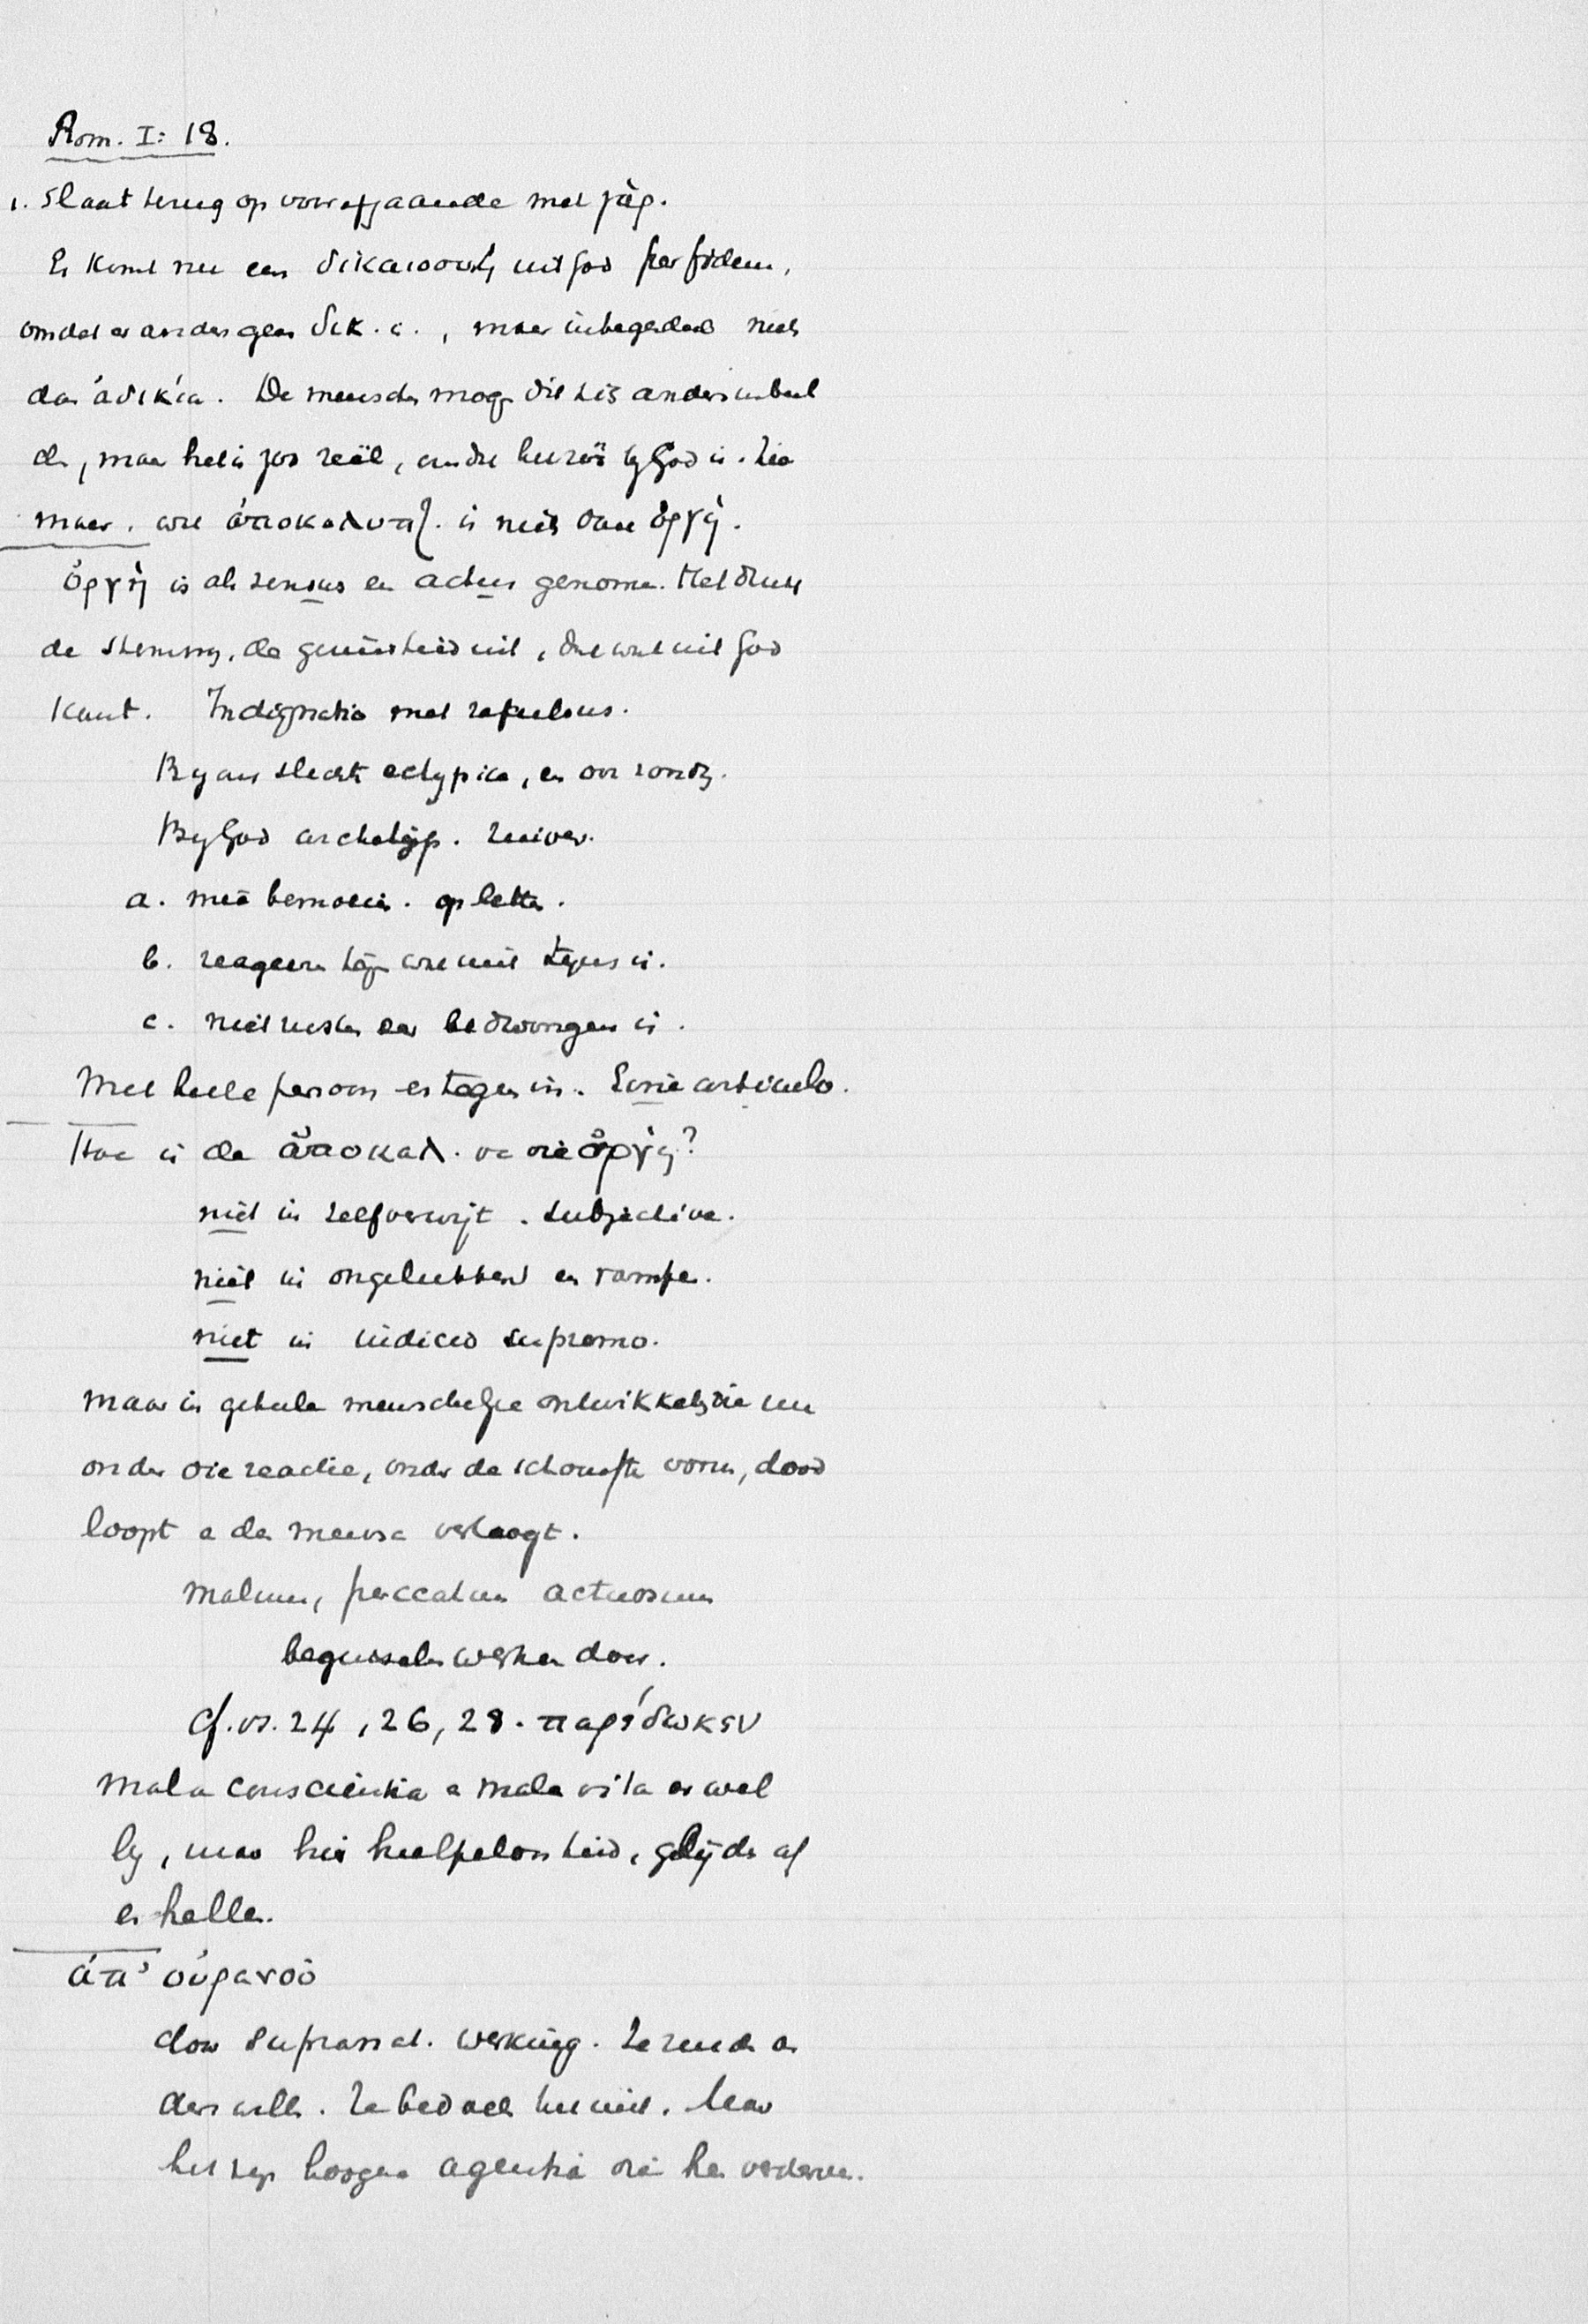 Rom. I: 18.
1. Slaat terug op voorafgaande met γὰρ.
Er komt nu een δικαιοσύνη uit God per fidem,
omdat er anders geen δικ. is, maar integendeel niets
dan ἀδικία. De menschen mogen dit zich anders inbeel
den, maar het is zoo reëel, omdat het zoo by God is.
maar. wie ἀποκαλυπτ. is niets dan ὀργή.
ὀργὴ is als sensus en actus genomen. Het drukt
de stemming, de gezindheid uit, die wat uit God
komt. Indignatio met repulsus.
By ons slechts ectypice, en vol zonde.
By God archetyp. zuiver.
a. mee bemoeien. op letten.
b. reageeren tegen wat niet tegens is.
c. niet rusten eer bedwongen is.
Met heele persoon er tegen in. Sine articulo.
Hoe is de ἀποκαλ. van die ὀργή?
niet in zelfverwijt. subjective.
niet in ongelukken en rampen.
niet in iudicio supremo.
maar in geheele menschelyke ontwikkeling die nu
onder die reactie, onder de schoonste vorm, dood
loopt en den mensch verlaagt.
Malum, peccatum actuosum
beginselen werken door.
Cf. vs. 24, 26, 28. παρέδωκεν
Mala conscientia en mala vita er wel
by, maar hier hulpeloosheid, glijden af
en hellen.
ἀπ' οὐρανοῦ
door supranat. werking. Ze zouden an
ders willen. Ze bedoelen het niet. Maar
het zyn hoogere agentia die hen verderven.